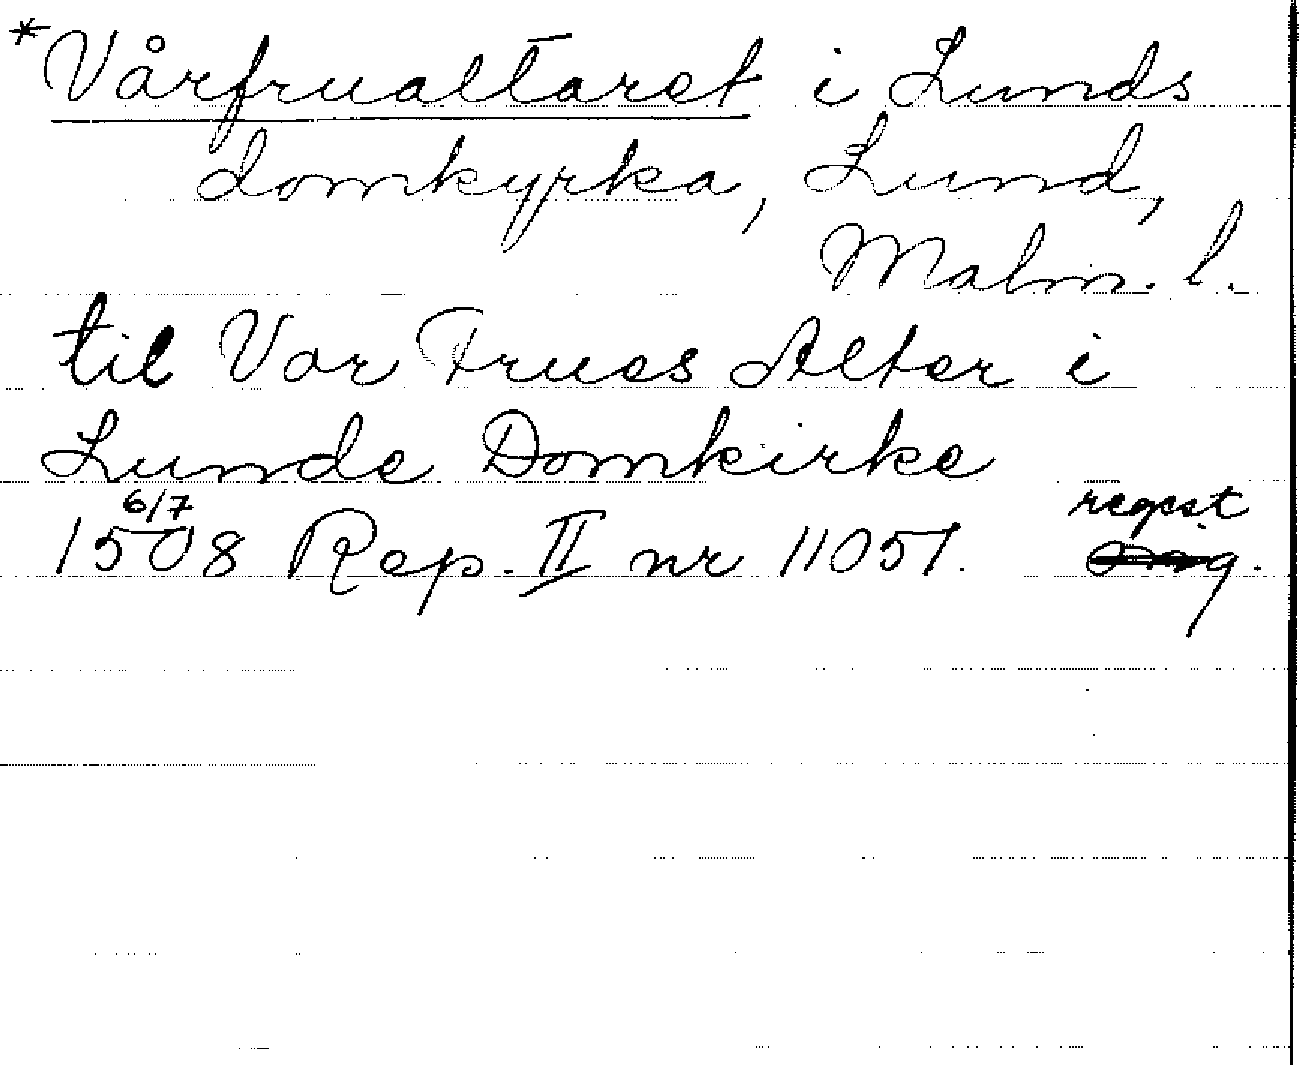 *Vårfrualtaret i Lunds
domkyrka, Lund,
Malm. l.
til Vor Frues Alter i
Lunde Domkirke
6/7 regest
1508 Rep. II nr 11051.